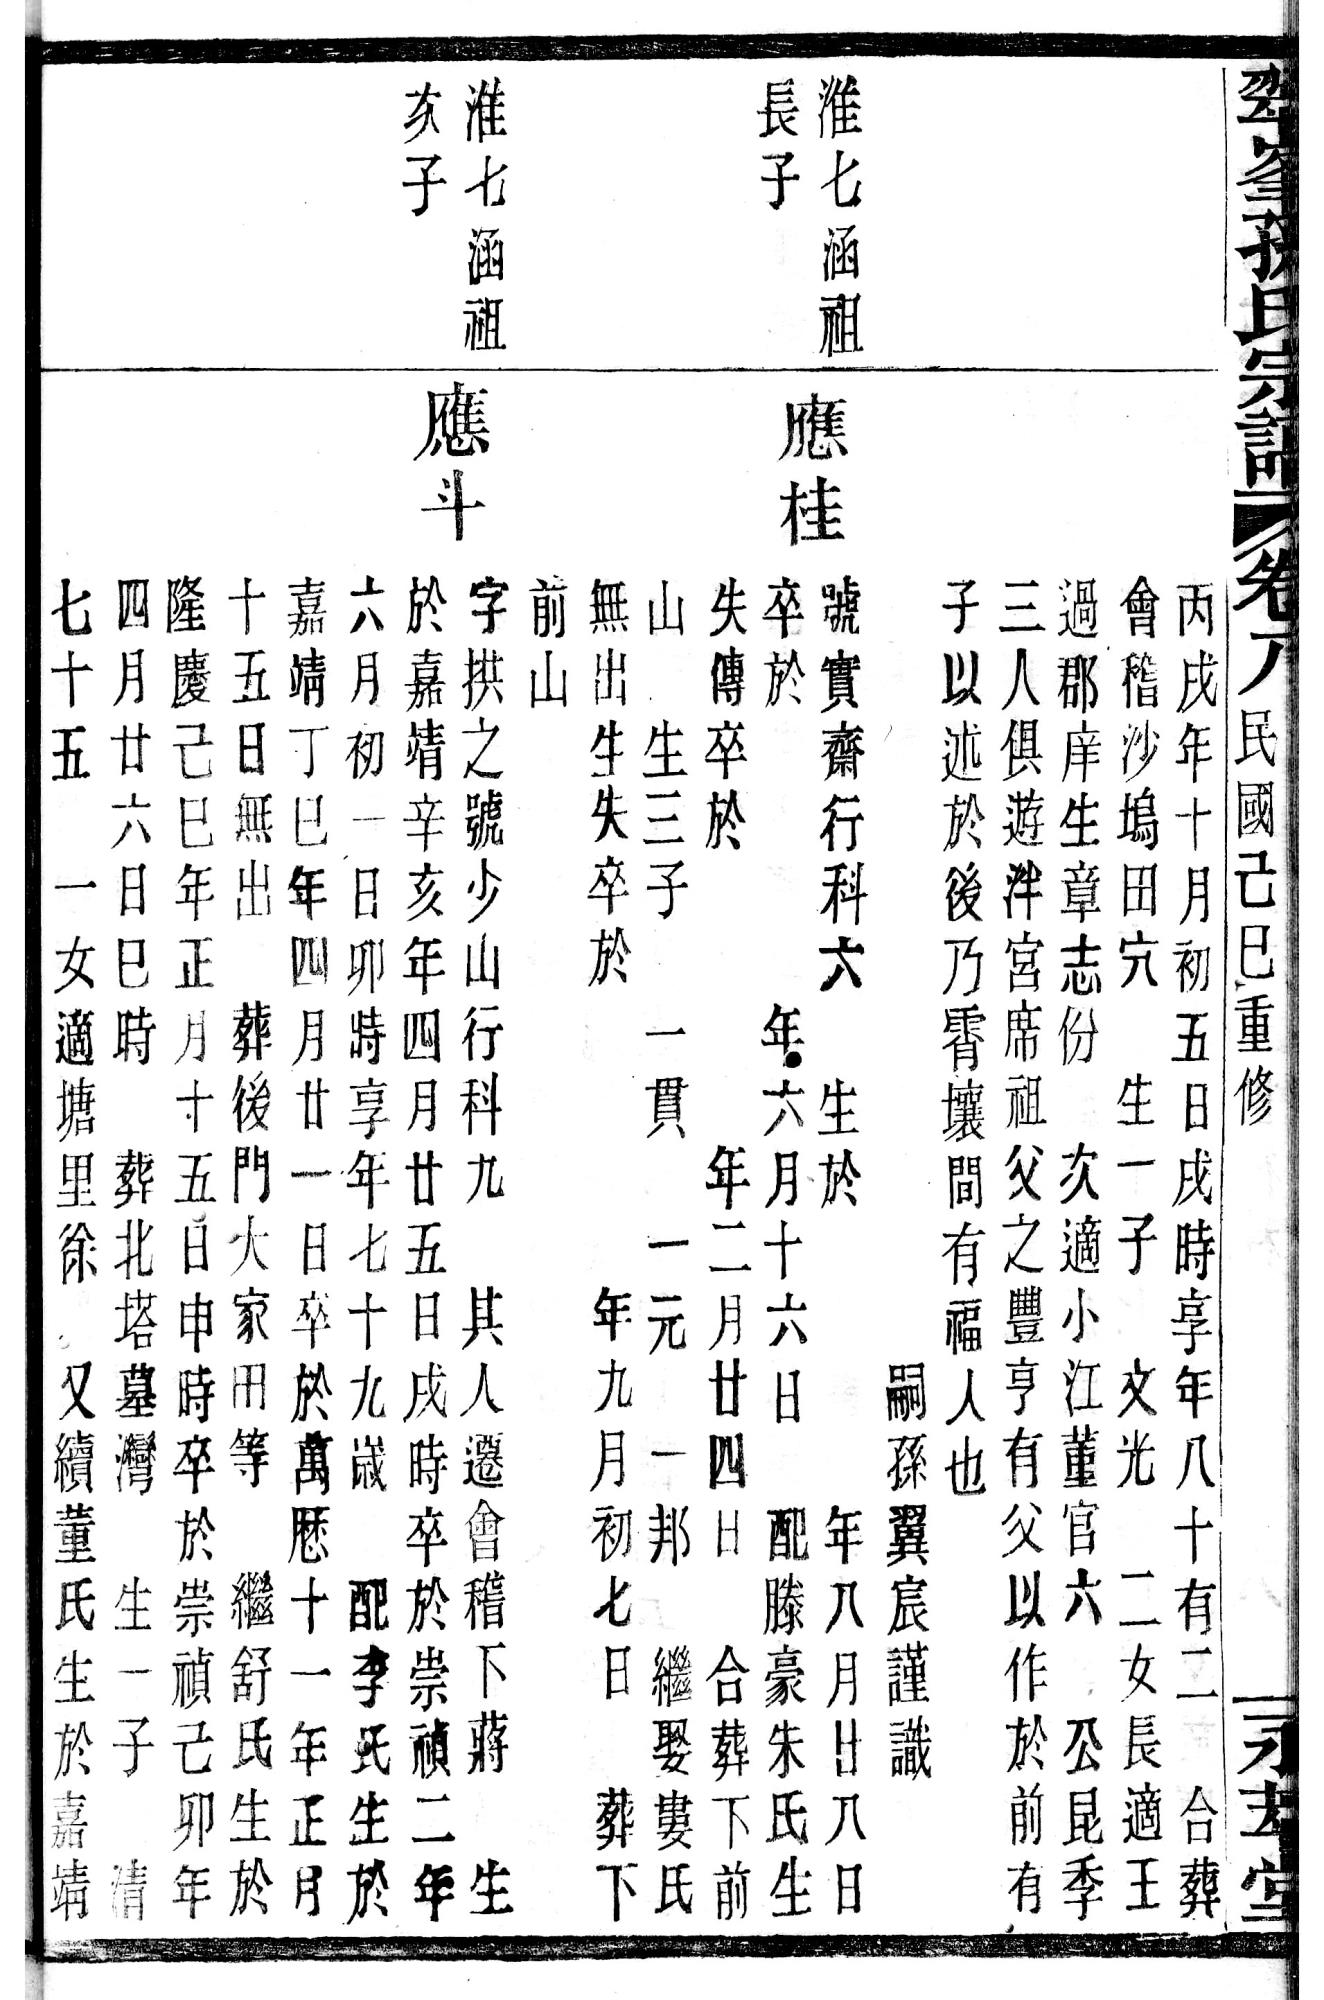 翠峯孫氏宗譜 卷八 民國己巳重修 永芳堂
丙戌年十月初五日戌時享年八十有二 合葬
會稽沙塢田穴 生一子 文光 二女長適王
過郡庠生章志份 次適小江董官六 公昆季
三人俱遊泮宮席祖父之豐亨有父以作於前有
子以述於後乃霄壤間有福人也
嗣孫翼宸謹識
淮七涵祖
長子
應桂
號實齋行科六 生於 年八月廿八日
卒於 年六月十六日 配滕豪朱氏生
失傳卒於 年二月廿四日 合葬下前
山 生三子 一貫 一元 一邦 繼娶婁氏
無出生失卒於 年九月初七日 葬下
前山
淮七涵祖
次子
應斗
字拱之號少山行科九 其人遷會稽下蔣 生
於嘉靖辛亥年四月廿五日戌時卒於崇禎二年
六月初一日卯時享年七十九歲 配李氏生於
嘉靖丁巳年四月廿一日卒於萬厯十一年正月
十五日無出 葬後門大家田等 繼舒氏生於
隆慶己巳年正月十五日申時卒於崇禎己卯年
四月廿六日巳時 葬北塔墓灣 生一子 清
七十五 一女適塘里徐 又續董氏生於嘉靖